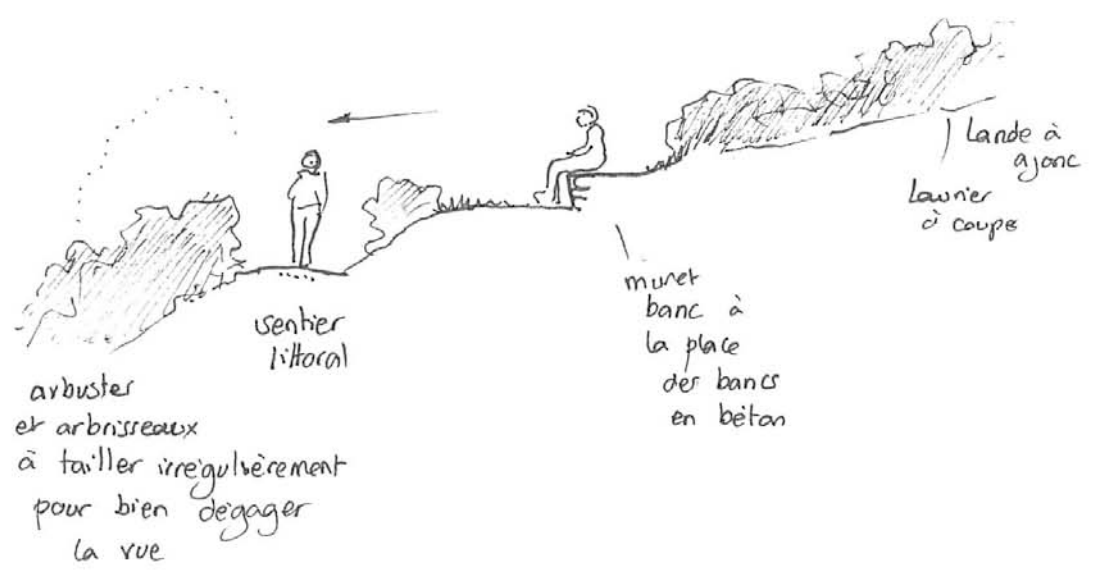 Lande à
ajonc
Laurier
à coupe
muret
banc à
la place
des bancs
en béton
sentier
littoral
arbustes
et arbrisseaux
à tailler irrégulièrement
pour bien dégager
la vue